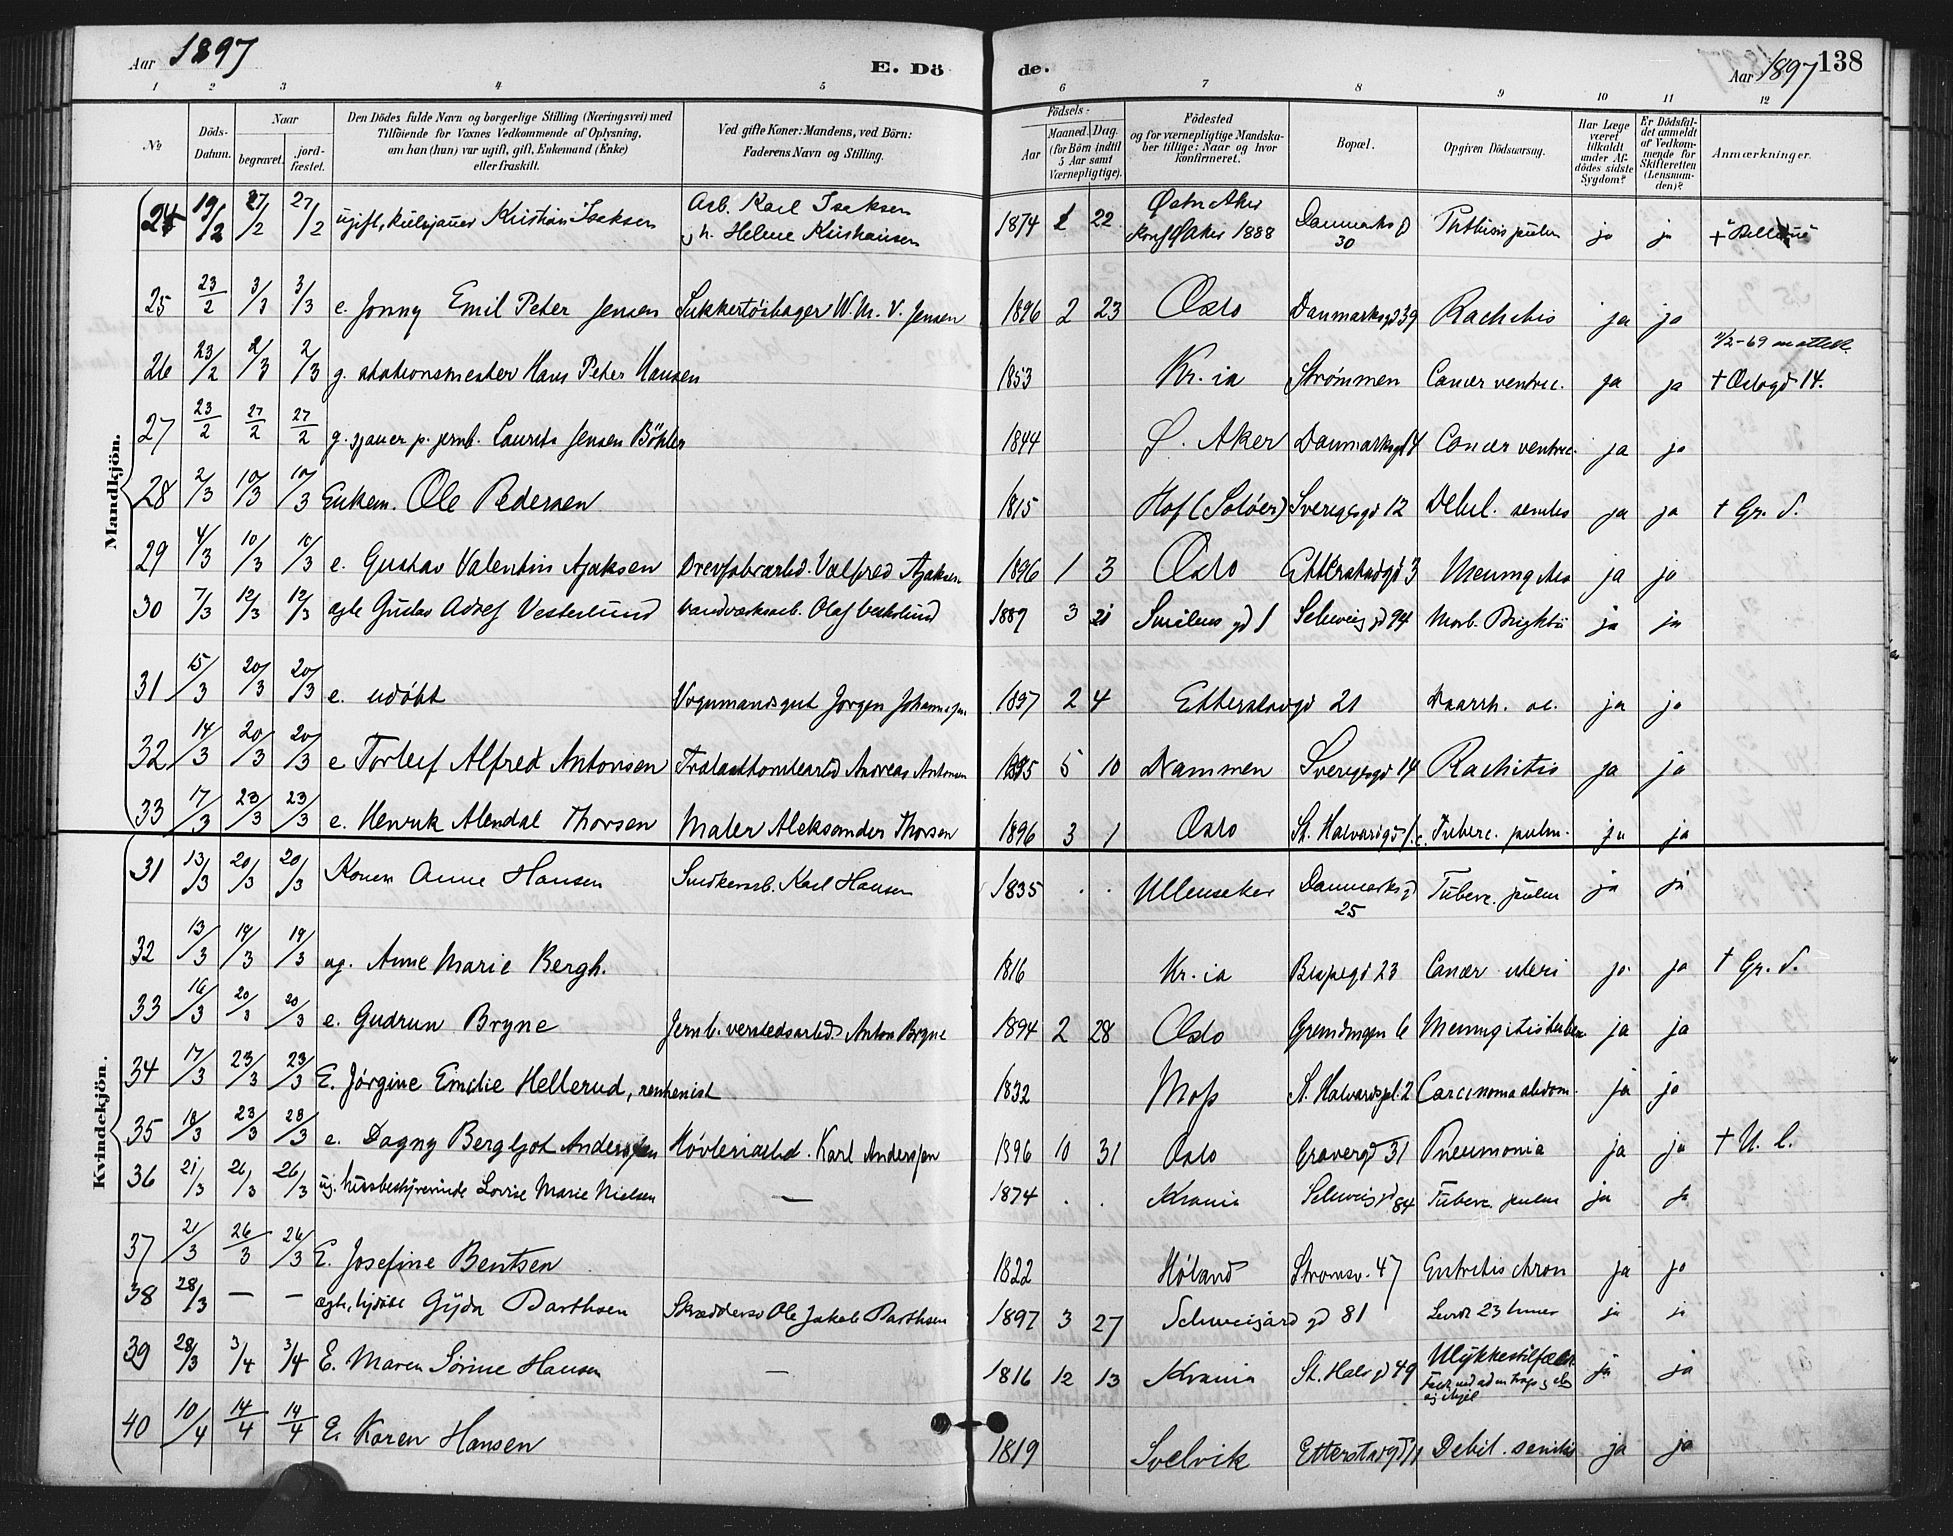 Aar 1897
E. Döde.
Aar 1897 138
1 2 3 4 5 6 7 8 9 10 11 12
No
Döds-Datum.
Naar
begravet.
jord-fæstet.
Den Dödes fulde Navn og borgerlige Stilling (Næringsvei) med
Tilföiende for Voxnes Vedkommende af Oplysning,
om han (hun) var ugift, gift, Enkemand (Enke)
eller fraskilt.
Ved gifte Koner: Mandens, ved Börn:
Faderens Navn og Stilling.
Födsels-
Aar
Maaned. Dag.
(for Börn indtil
5 Aar samt
Værnepligtige).
Födested
og for værnepligtige Mandska-
ber tillige: Naar og hvor
konfirmeret.
Bopæl.
Opgiven Dödsaarsag.
Har Læge
været
tilkaldt
under Af-
dödes sidste
Sygdom?
Er Dödsfal-
det anmeldt
af Vedkom-
mende for
Skifteretten
(Lensman-
den)?
Anmærkninger.
Mandkjön.
24 19/2 27/2 27/2 ugift, Kristian Isaksen Arb. Karl Isaksen
og h. Helene Kristiansen 1874 22 Østre Aker
konf Ø Aker 1888 Danmarksg
30 Phthisis pulm ja ja
25 23/2 3/3 3/3 e. Jonny Emil Peter Jensen W. M. V. Jensen 1896 2 23 Oslo Danmarksgd 39 Rachitis ja ja
26 23/2 2/3 2/3 g. stationsmester Hans Peter Hansen 1853 Kr.ia Strømmen Cancer ventric. ja ja † Oslogd 14.
27 23/2 27/2 27/2 g. sjauer p. jernb. Laurits Jensen Böhler 1844 Ø. Aker Danmarksgd 4 Cancer ventric. ja ja
28 2/3 10/3 10/3 Enkem. Ole Pedersen 1815 Hof (Soløer) Sverigesgd 12 Debil. senilis ja ja † Gr. S.
29 4/3 10/3 10/3 e. Gustav Valentin Ajaksen Valfred Ajaksen 1896 1 3 Oslo Etterstadgd 3 Meningitis ja ja
30 7/3 12/3 12/3 ægte Gustav Adolf Vesterlund Olaf Vesterlund 1887 3 Smålens gd 1 Schweig gd 94 Morb. Brightii ja ja
31 15/3 20/3 20/3 e. udøbt Vognmandsgut Jørgen Johannesen 1897 2 4 Etterstadgd 21 Diarrh. ac. ja ja
32 14/3 20/3 20/3 e Torleif Alfred Antonsen Andreas Antonsen 1895 5 10 Drammen Sverigesgd 14 Rachitis ja ja
33 17/3 23/3 23/3 e. Henrik Alendal Thorsen Maler Aleksander Thorsen 1896 3 1 Oslo St. Halvardsgd 1 c. Tuberc. pulm. ja ja
Kvindekjön.
31 13/3 20/3 20/3 Konen Anne Hansen Snedkerarb. Karl Hansen 1835 . . Ullensaker Danmarksgd
25 Tuberc. pulm ja ja
32 13/3 19/3 19/3 ug. Anne Marie Bergh. 1816 Kr.ia Bispegd 23 Cancer uteri ja ja † Gr. S.
33 16/3 20/3 20/3 e. Gudrun Bryne Jernb. verkstedsarbd. Anton Bryne 1894 2 28 Oslo Grændingen 6 Meningitis tuberc ja ja
34 17/3 23/3 23/3 E. Jørgine Emilie Hellerud, rentenist 1832 Moss St. Halvardspl. 2 Carcinoma abdom. ja ja
35 18/3 23/3 23/3 e. Dagny Bergljot Anderssen Høvleriarbd. Karl Anderssen 1896 10 31 Oslo Gravergd 31 Pneumonia ja ja † U. l.
36 21/3 26/3 26/3 ug. husbestyrerinde Lovise Marie Nielsen — 1874 . . Krania Schweigd 84 Tuberc. pulm ja ja
37 21/3 26/3 26/3 E. Josefine Bentsen 1822 Høland Strømsv. 47 Entritis chron ja ja
38 28/3 — — ægte, hjdøbt Gyda Barthsen Skræddersv Ole Jakob Barthsen 1897 3 27 Schweigård gd 81 Levde 23 timer ja ja
39 28/3 3/4 3/4 E. Maren Sørine Hansen — 1816 12 13 Krania St. Halvgd 49 Ulykkestilfælde
Faldt ned ad en trap og slo
sig ihjel ja ja
40 10/4 14/4 14/4 E. Karen Hansen 1819 Svelvik Etterstadgd 11 Debil. senilis ja ja